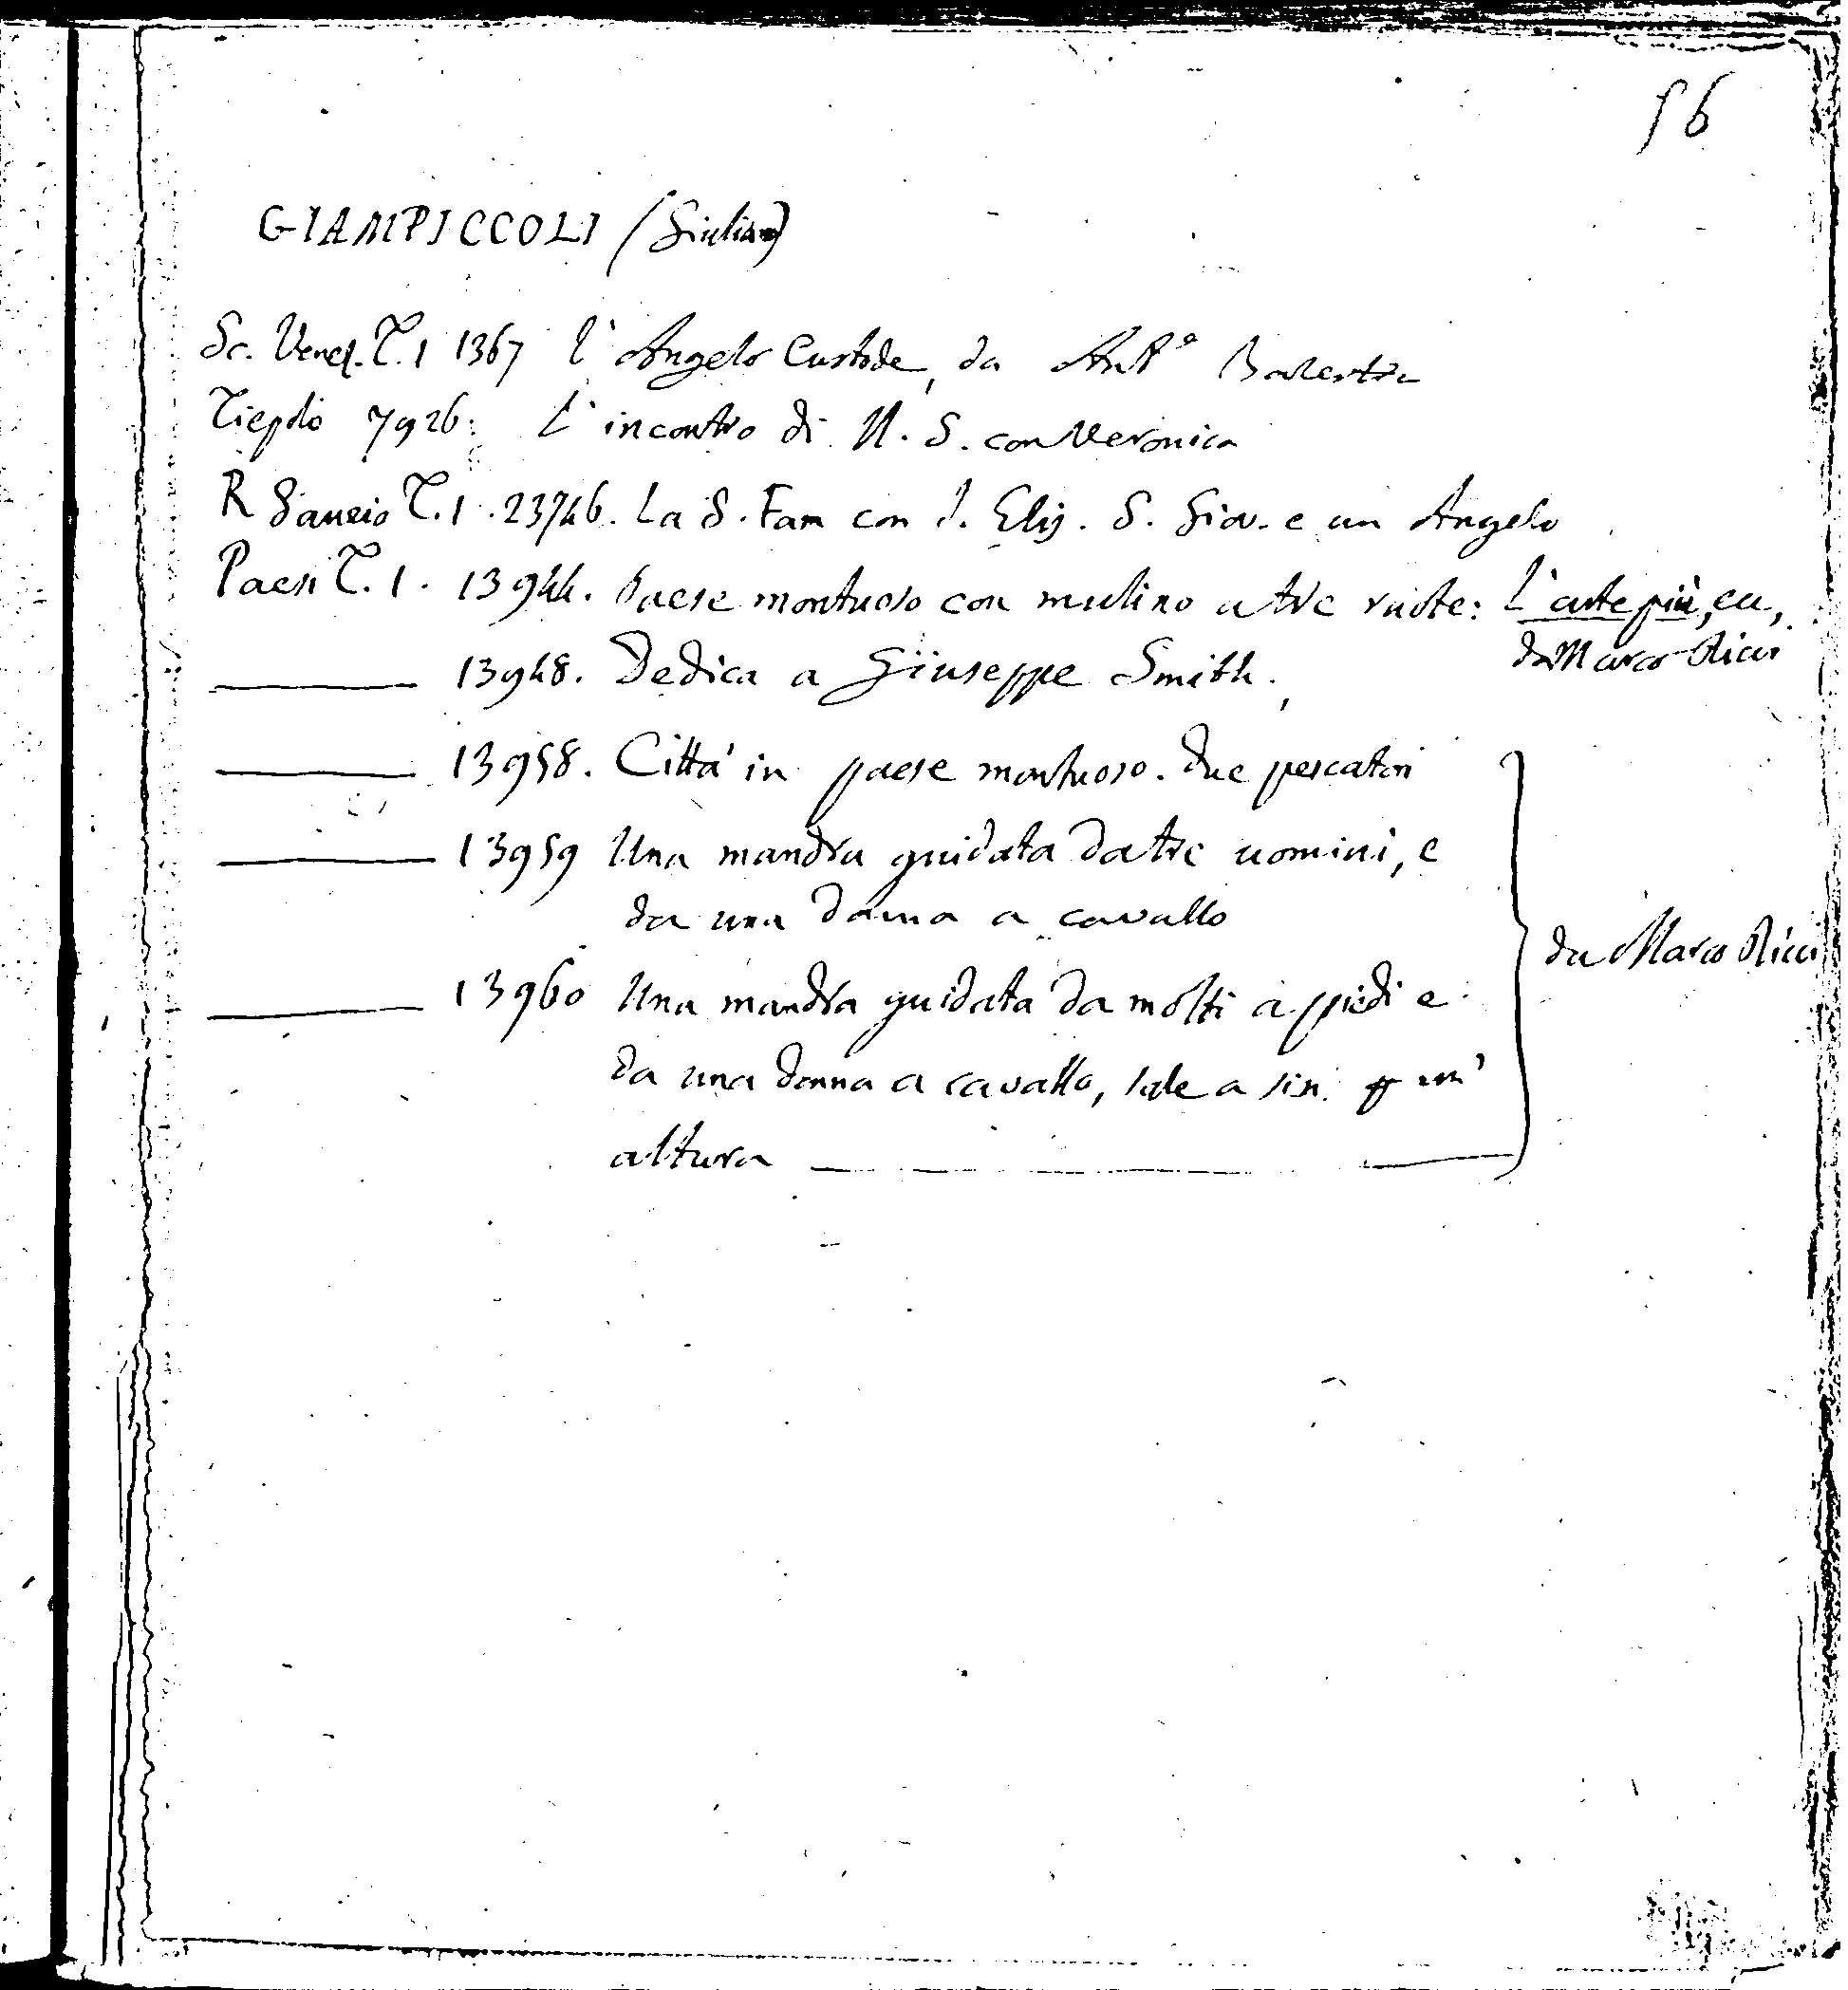 56
GIAMPICCOLI (Giuliano)
Sc. Venez. T. 1 1367 L'Angelo Custode, da Ant.º Balestra
Tiepolo 7926. L'incontro di N. S. con Veronica
R Sanzio T. 1. 23746. La S. Fam con S. Elis. S. Giov. e un Angelo
Paesi T. 1. 13944. Paese montuoso con mulino a tre ruote: L'arte più, ec,
da Marco Ricci
——— 13948. Dedica a Giuseppe Smith.
——— 13958. Città in paese montuoso. due pescatori
——— 13959 Una mandra guidata da tre uomini, e
da una dama a cavallo
da Marco Ricci
——— 13960 Una mandra guidata da molti a piedi e
da una donna a cavallo, sale a sin. un'
altura ———